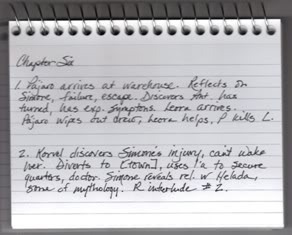 Chapter Six
1. Pájaro arrives at warehouse. Reflects on
Simone, failure, escape. Discovers Ant. has
turned, has exp. symptoms. Leora arrives.
Pájaro wipes out crew, Leora helps, P kills L.
2. Kornel discovers Simone's injury, can't wake
her. Diverts to [town], uses to secure
quarters, doctor. Simone reveals rel. w Helada,
some of mythology. R interlude #2.